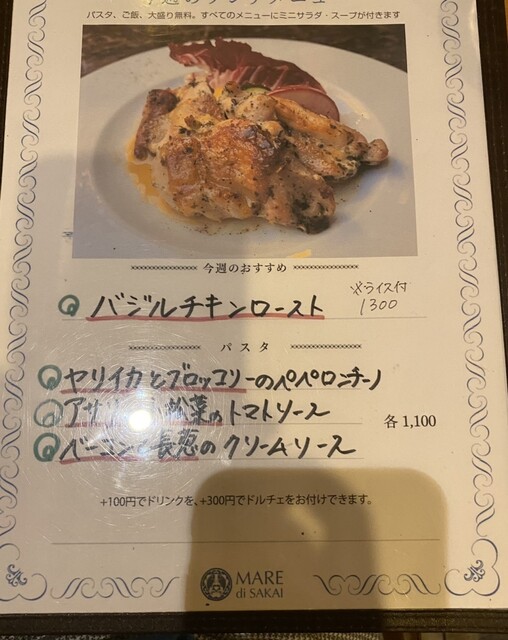 今週のランチメニュー
パスタ、ご飯、大盛り無料。すべてのメニューにミニサラダ・スープが付きます
今週のおすすめ
バジルチキンロースト
※ライス付
1300
パスタ
ヤリイカとブロッコリーのペペロンチーノ
アサ 松菜のトマトソース
各 1,100
ベーコンと長葱のクリームソース
+100円でドリンクを、+300円でドルチェをお付けできます。
MARE
di SAKAI